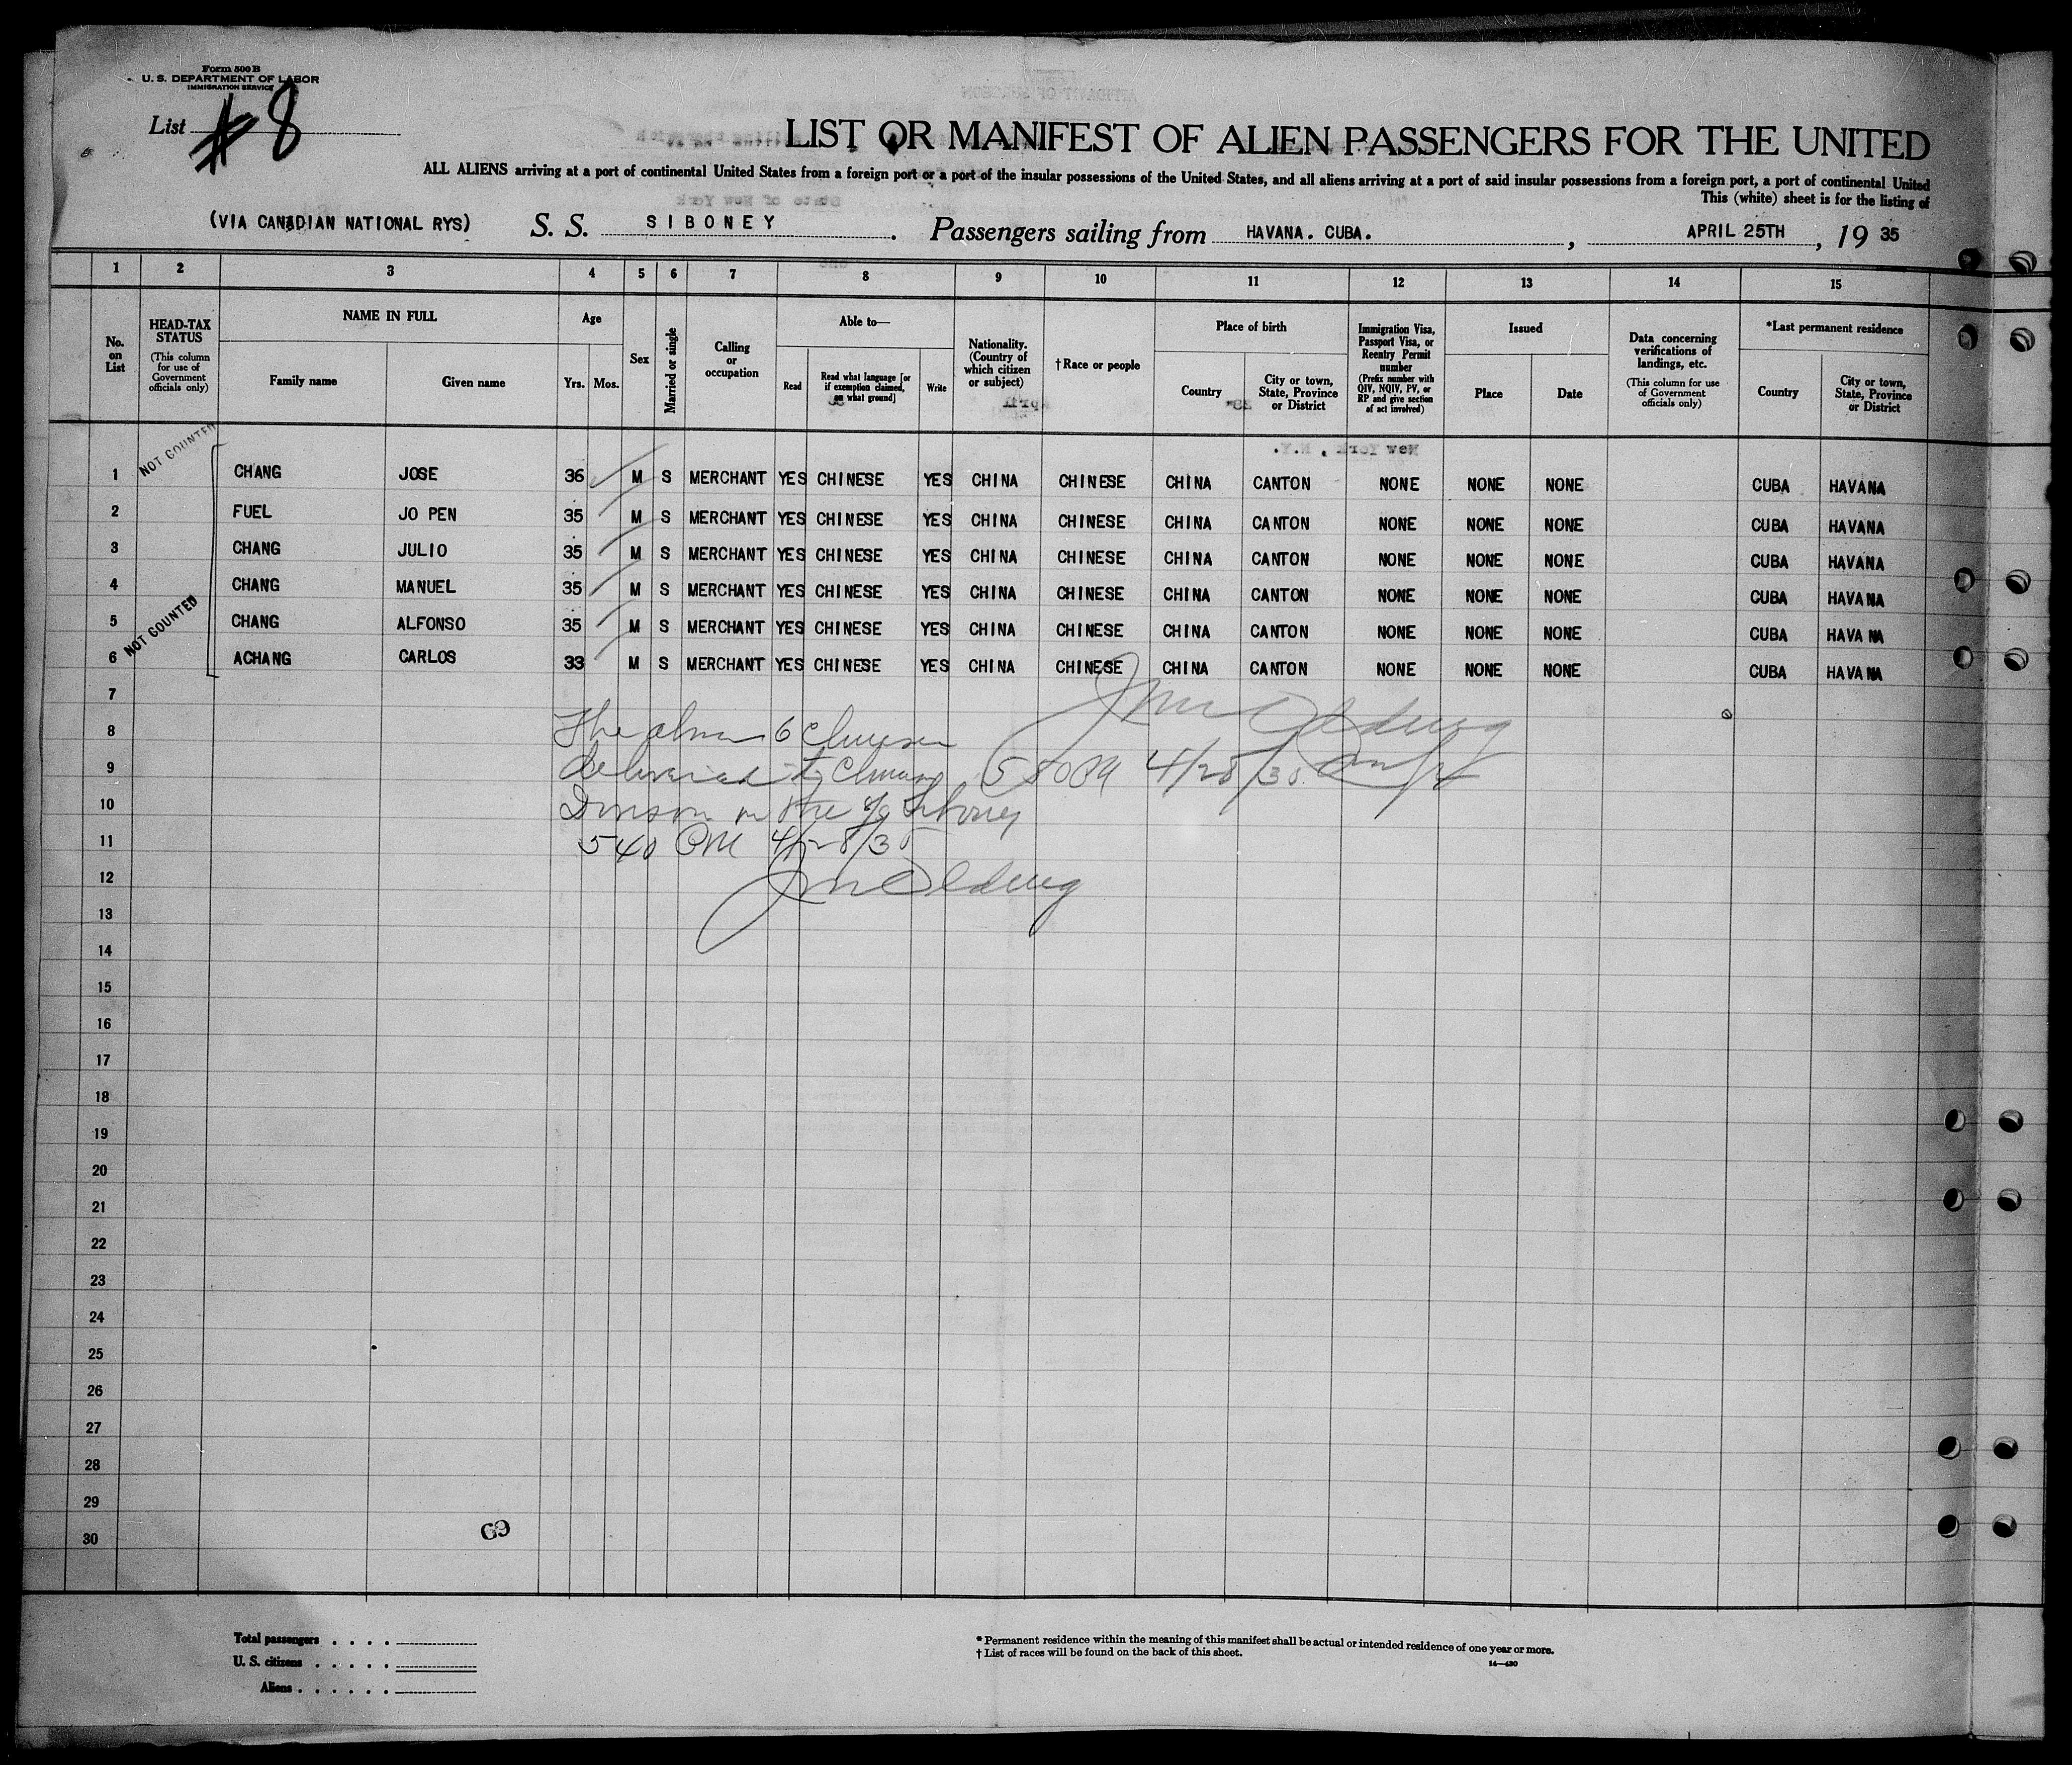 Form 500 B
U. S. DEPARTMENT OF LABOR
IMMIGRATION SERVICE
List #8
LIST OR MANIFEST OF ALIEN PASSENGERS FOR THE UNITED
ALL ALIENS arriving at a port of continental United States from a foreign port or a port of the insular possessions of the United States, and all aliens arriving at a port of said insular possessions from a foreign port, a port of continental United
This (white) sheet is for the listing of
(VIA CANADIAN NATIONAL RYS) S. S. SIBONEY. Passengers sailing from HAVANA. CUBA. , APRIL 25TH , 19 35
1 2 3 4 5 6 7 8 9 10 11 12 13 14 15
No. on List
HEAD-TAX STATUS (This column for use of Government officials only)
NAME IN FULL
Family name Given name
Age
Yrs. Mos.
Sex
Married or single
Calling or occupation
Able to—
Read Read what language [or if exemption claimed, on what ground] Write
Nationality. (Country of which citizen or subject)
† Race or people
Place of birth
Country City or town, State, Province or District
Immigration Visa, Passport Visa, or Reentry Permit number (Prefix number with QIV, NQIV, PV, or RP and give section of act involved)
Issued
Place Date
Data concerning verifications of landings, etc. (This column for use of Government officials only)
*Last permanent residence
Country City or town, State, Province or District
NOT COUNTED
1 CHANG JOSE 36 M S MERCHANT YES CHINESE YES CHINA CHINESE CHINA CANTON NONE NONE NONE CUBA HAVANA
2 FUEL JO PEN 35 M S MERCHANT YES CHINESE YES CHINA CHINESE CHINA CANTON NONE NONE NONE CUBA HAVANA
3 CHANG JULIO 35 M S MERCHANT YES CHINESE YES CHINA CHINESE CHINA CANTON NONE NONE NONE CUBA HAVANA
4 CHANG MANUEL 35 M S MERCHANT YES CHINESE YES CHINA CHINESE CHINA CANTON NONE NONE NONE CUBA HAVANA
5 CHANG ALFONSO 35 M S MERCHANT YES CHINESE YES CHINA CHINESE CHINA CANTON NONE NONE NONE CUBA HAVANA
NOT COUNTED
6 ACHANG CARLOS 33 M S MERCHANT YES CHINESE YES CHINA CHINESE CHINA CANTON NONE NONE NONE CUBA HAVANA
7
8 The above 6 Chinese
9 delivered to Chinese 4/28/35
10 Division on the Siboney
11 540 PM 4/28/35
12
13
14
15
16
17
18
19
20
21
22
23
24
25
26
27
28
29
30
69
Total passengers . . . .
U. S. citizens . . . . .
Aliens . . . . . .
* Permanent residence within the meaning of this manifest shall be actual or intended residence of one year or more.
† List of races will be found on the back of this sheet.
14—430